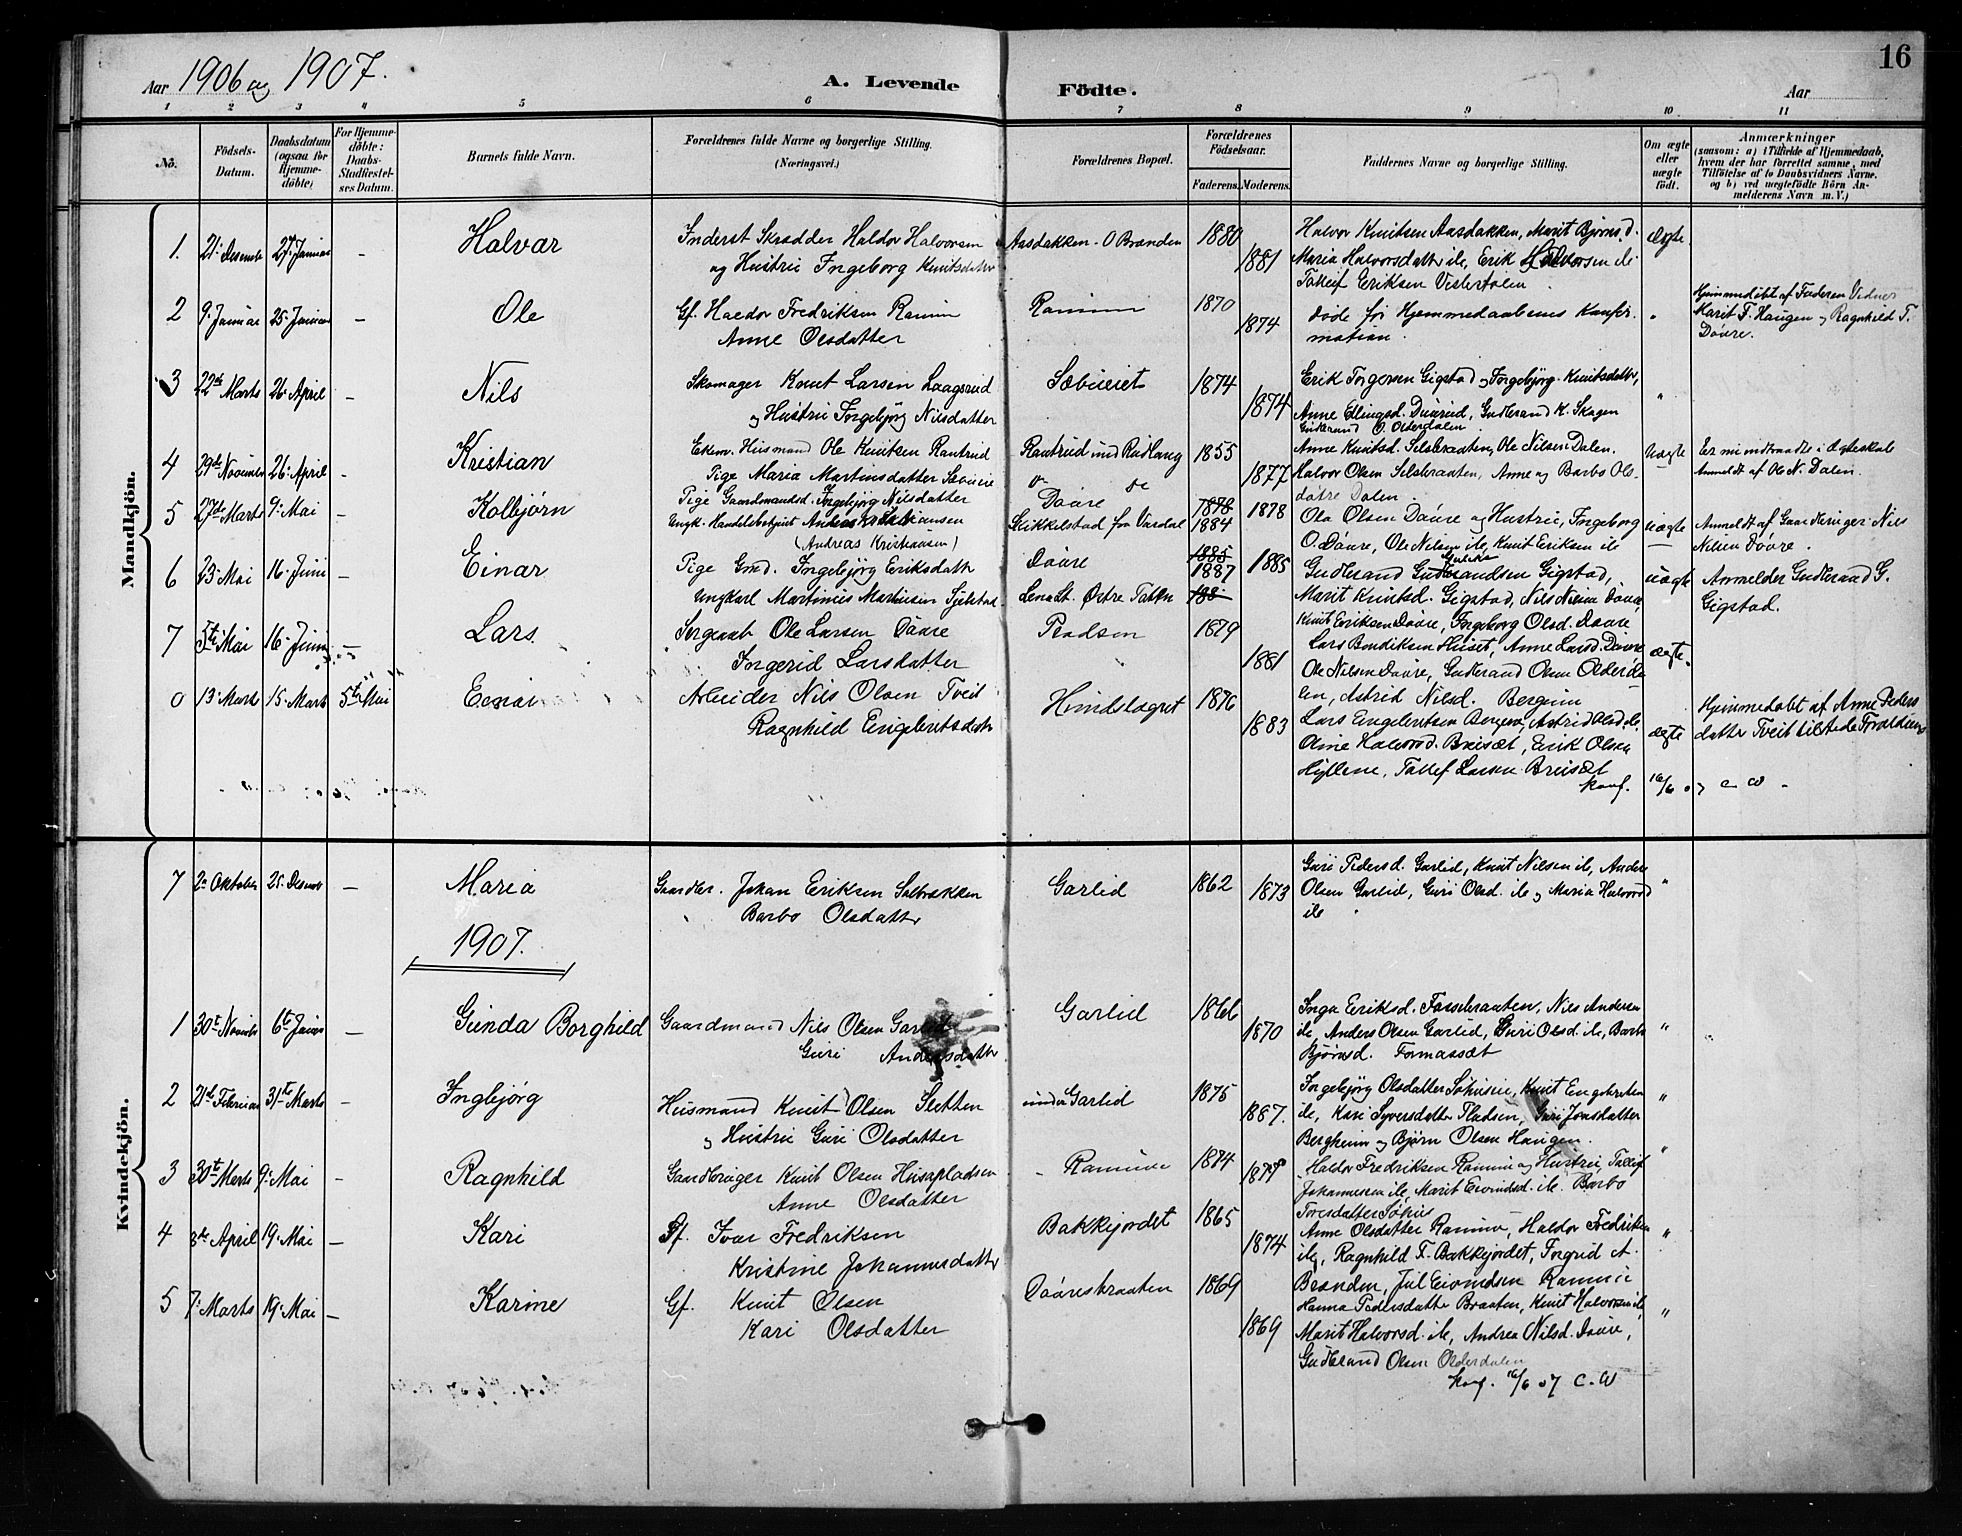 Aar 1906 og 1907. A. Levende Födte. Aar 16
1 2 3 4 5 6 7 8 9 10 11
No.
Födsels-
Datum.
Daabsdatum
(ogsaa for
Hjemme-
döbte)
For Hjemme-
döbte:
Daabs-
Stadfæstel-
ses Datum.
Barnets fulde Navn.
Forældrenes fulde Navne og borgerlige Stilling.
(Næringsvei.)
Forældrenes Bopæl.
Forældrenes
Födselsaar.
Faderens. Moderens.
Faddernes Navne og borgerlige Stilling.
Om ægte
eller
uægte
födt.
Anmærkninger
(saasom: a) i Tilfælde af Hjemmedaab,
hvem der har forrettet samme, med
Tilföielse af to Daabsvidners Navne.
og b) ved uægtefödte Börn An-
melderens Navn m. V.)
Mandkjön.
1. 21. Desemb 27. Januar - Halvar
Inderst Skrædder Haldor Halvorsen
og Hustru Ingeborg Knutsdatter
Aasdakken - O Branden 1880
1881
Halvor Knutsen Aasdakken, Marit Bjørnsd.
Maria Halvorsdatter ile, Erik Halvorsen ile
Tolleif Eriksen
ægte
2 9. Januar 25. Januar - Ole
Gf. Haldor Fredriksen Ramun
Anne Olsdatter
Ramun 1870
1874
døde før Hjemmedaabens Konfir-
mation.
"
Hjemmedøbt af Faderen Vidner
Marit T. Haugen og Ragnhild T.
Daare.
3 22de Marts 26. April - Nils
Skomager Knut Larsen Laagsrud
og Hustru Ingebjørg Nilsdatter
1874
1874
Erik Torgersen Gigstad og Ingebjørg Knutsdatter,
Anne Ellingsd. Gudbrand K. Skagen
Gudbrand O. Olderdalen
"
4 29de November 26. April - Kristian
Enkem. Husmand Ole Knutsen Rantrud
Pige Maria Martinsdatter
Rantrud und Rudlang 1855
1877
Anne Knutsd. Ole Nilsen Dalen.
Halvor Olsen Anne og Barbo Ols-
døtre Dalen.
Uægte
Anmeldt af Ole N. Dalen.
5 27de Marts 9. Mai - Kolbjørn
Pige Gaardmandsd. Ingebjørg Nilsdatter
Ungk. Handelsbetjent Andreas Kristiansen
(Andreas Kristiansen)
Daare
Skikkelstad fra Vardal
1878
1884
1878
Ola Olsen Daare og Hustru, Ingeborg
O. Daare, Ole Nilsen ile, Knut Eriksen ile
uægte
Anmeldt af Gaardbruger Nils
Nilsen Daare.
6 23. Mai 16. Juni - Einar
Pige Gmd. Ingebjørg Eriksdatter
Ungkarl Martinius Martinsen
Daare
Lena St. Østre Toten
1885
1887
1885
Gudbrand Gudbrandsen Gigstad,
Marit Knutsd. Gigstad, Nils Nilsen Daare
Knut Eriksen Daare, Ingeborg Olsd. Daare
uægte
Anmelder Gudbrand G.
Gigstad.
7 5te Mai 16. Juni - Lars
Ole Larsen Daare
Ingerid Larsdatter
Pladsen 1879
1881
Lars Bendiksen Huset, Anne Larsd. Daare
Ole Nilsen Daare, Gudbrand Olsen Olderda-
ægte.
0 13. Marts 15. Marts 5te Mai
Arbeider Nils Olsen Tveit
Ragnhild Engebretsdatter
1876
1883
len, Astrid Nilsd. Bergum
Lars Engebretsen Bergum, Astrid Olsd. ile
Oline Halvorsd. Breisæt, Erik Olsen
Hyllene, Tollef Larsen Breisæt
konf. 16/6 07 C W.
ægte
Hjemmedøbt af Anne Peders
datter Tveit tilstede Forældrene
Kvindekjön.
7 2. Oktober 25. Desemb - Maria
Gaardbr. Johan Eriksen
Barbo Olsdatter
Garlid 1862
1873
Guri Pedersd. Garlid, Knut Nilsen ile, Anders
Olsen Garlid, Guri Olsd. ile og Maria Halvorsd
ile
"
1907.
1 30te Novemb 6te Januar - Gunda Borghild
Gaardmand Nils Olsen Garlid
Guri Andersdatter
Garlid 1866
1870
Inga Eriksd. Nils Andersen
ile, Anders Olsen Garlid, Guri Olsd. ile, Barbo
Bjørnsd. Formassæt
"
2 21de Februar 31te Marts - Ingbjørg
Husmand Knut Olsen Sletten
og Hustru Guri Olsdatter
under Garlid 1875
1887.
Ingebjørg Olsdatter Knut Engebretsen
ile, Kari Syversdatter Pladsen, Guri Jonsdatter
Bergheim og Bjørn Olsen Haugen.
"
3 30te Marts 9. Mai - Ragnhild
Gaardbruger Knut Olsen Husapladsen
Anne Olsdatter
Ramun 1874
Haldor Fredriksen Ramun og Hustru, Tollef
Johannesen ile, Marit Eivindsd. ile. Barbo
"
4 8de April 19. Mai - Kari
Pf. Ivar Fredriksen
Kristine Johannesdatter
Bakkejordet 1865
1874
Anne Olsdatter Ramun, Haldor Fredriksen
ile, Ragnhild F. Bakkejordet, Ingrid A.
Branden, Jul Eivindsen Ramun
"
5 7. Marts 19. Mai - Karine
Gf. Knut Olsen
Kari Olsdatter
Daaresbraaten 1869
1869
Hanna Pedersdatter Braaten, Knut Halvorsen ile
Marit Halvorsd. ile, Andrea Nilsd. Daare,
Gudbrand Olsen Olderdalen
konf. 16/6 07 C. W
"